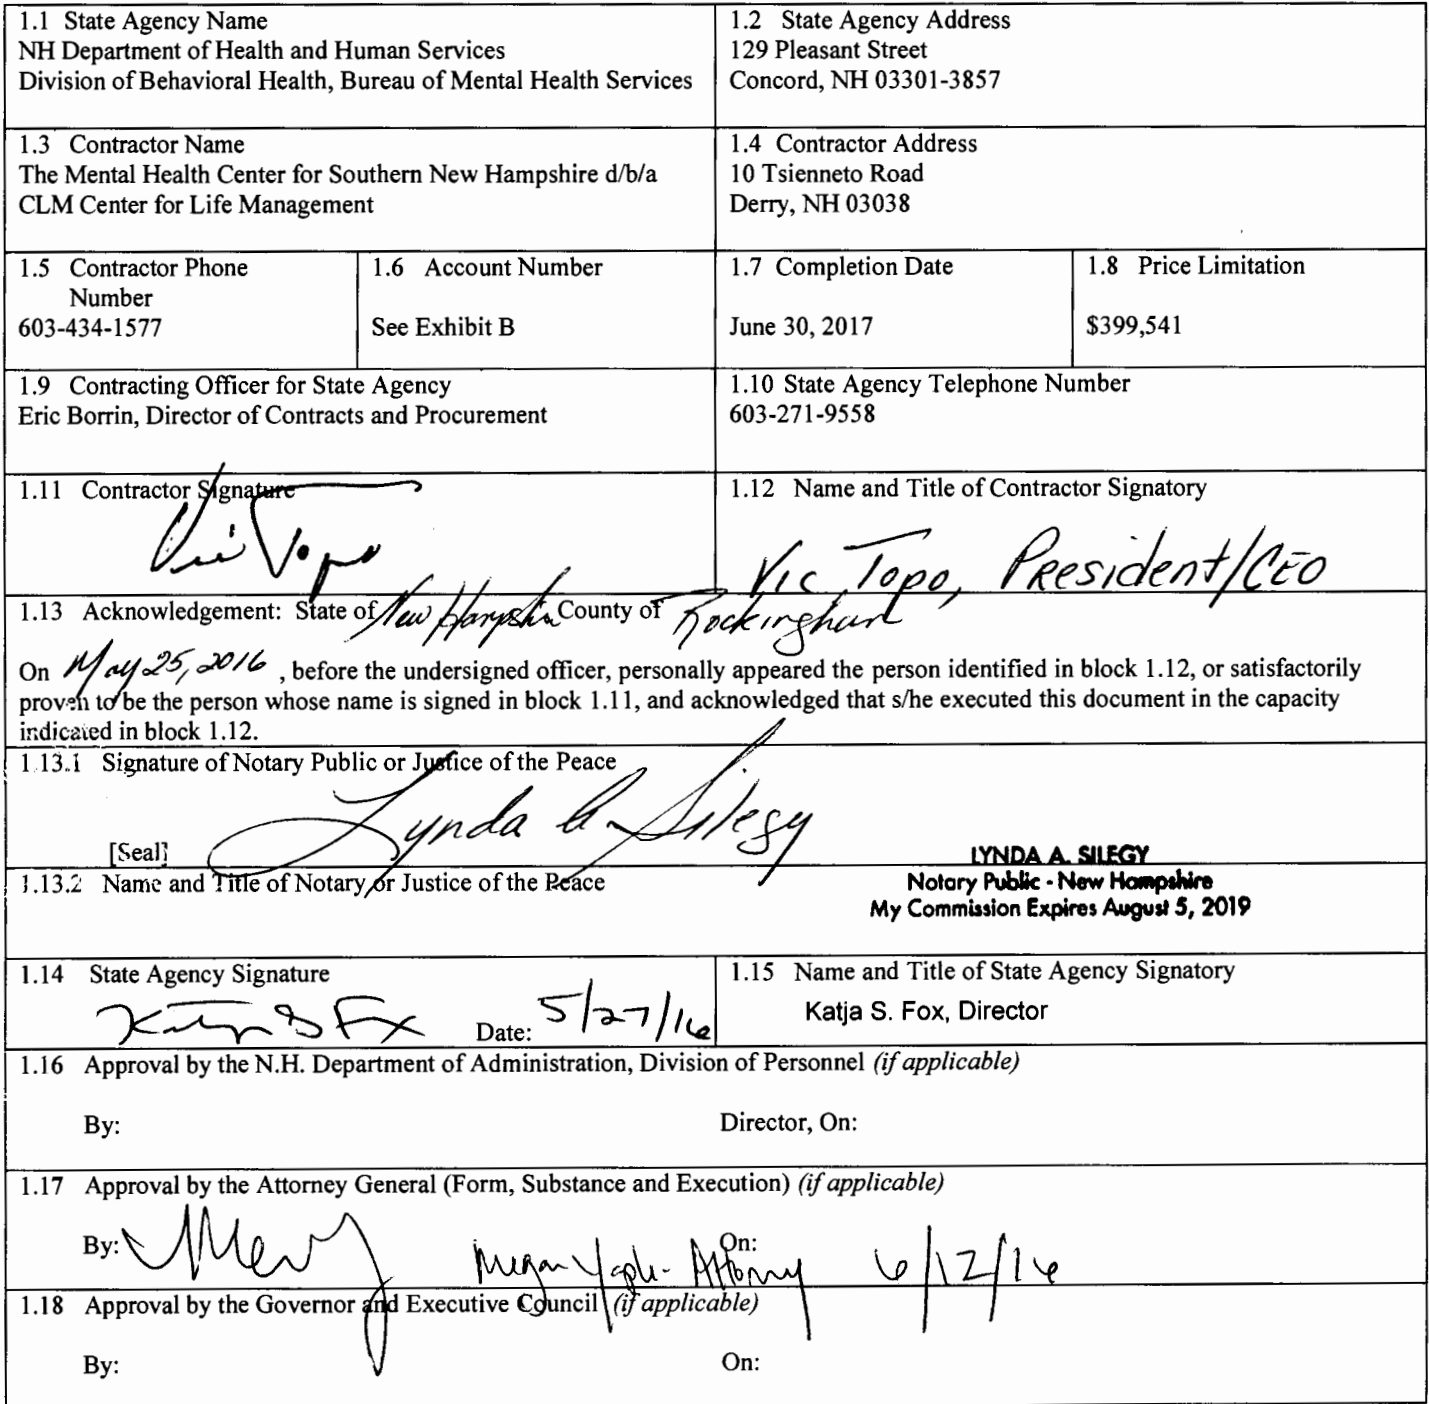 1.1 State Agency Name
NH Department of Health and Human Services
Division of Behavioral Health, Bureau of Mental Health Services
1.2 State Agency Address
129 Pleasant Street
Concord, NH 03301-3857
1.3 Contractor Name
The Mental Health Center for Southern New Hampshire d/b/a
CLM Center for Life Management
1.4 Contractor Address
10 Tsienneto Road
Derry, NH 03038
1.5 Contractor Phone
Number
603-434-1577
1.6 Account Number
See Exhibit B
1.7 Completion Date
June 30, 2017
1.8 Price Limitation
$399,541
1.9 Contracting Officer for State Agency
Eric Borrin, Director of Contracts and Procurement
1.10 State Agency Telephone Number
603-271-9558
1.11 Contractor Signature
Vic Topo
1.12 Name and Title of Contractor Signatory
Vic Topo, President/CEO
1.13 Acknowledgement: State of New Hampshire County of Rockingham
On May 25, 2016, before the undersigned officer, personally appeared the person identified in block 1.12, or satisfactorily
proven to be the person whose name is signed in block 1.11, and acknowledged that s/he executed this document in the capacity
indicated in block 1.12.
1.13.1 Signature of Notary Public or Justice of the Peace
Lynda A Silegy
[Seal]
LYNDA A. SILEGY
Notary Public - New Hampshire
My Commission Expires August 5, 2019
1.13.2 Name and Title of Notary or Justice of the Peace
1.14 State Agency Signature
Katja S Fox Date: 5/27/16
1.15 Name and Title of State Agency Signatory
Katja S. Fox, Director
1.16 Approval by the N.H. Department of Administration, Division of Personnel (if applicable)
By: Director, On:
1.17 Approval by the Attorney General (Form, Substance and Execution) (if applicable)
By: Megan Yaple - Attorney On: 6/12/16
1.18 Approval by the Governor and Executive Council (if applicable)
By: On: